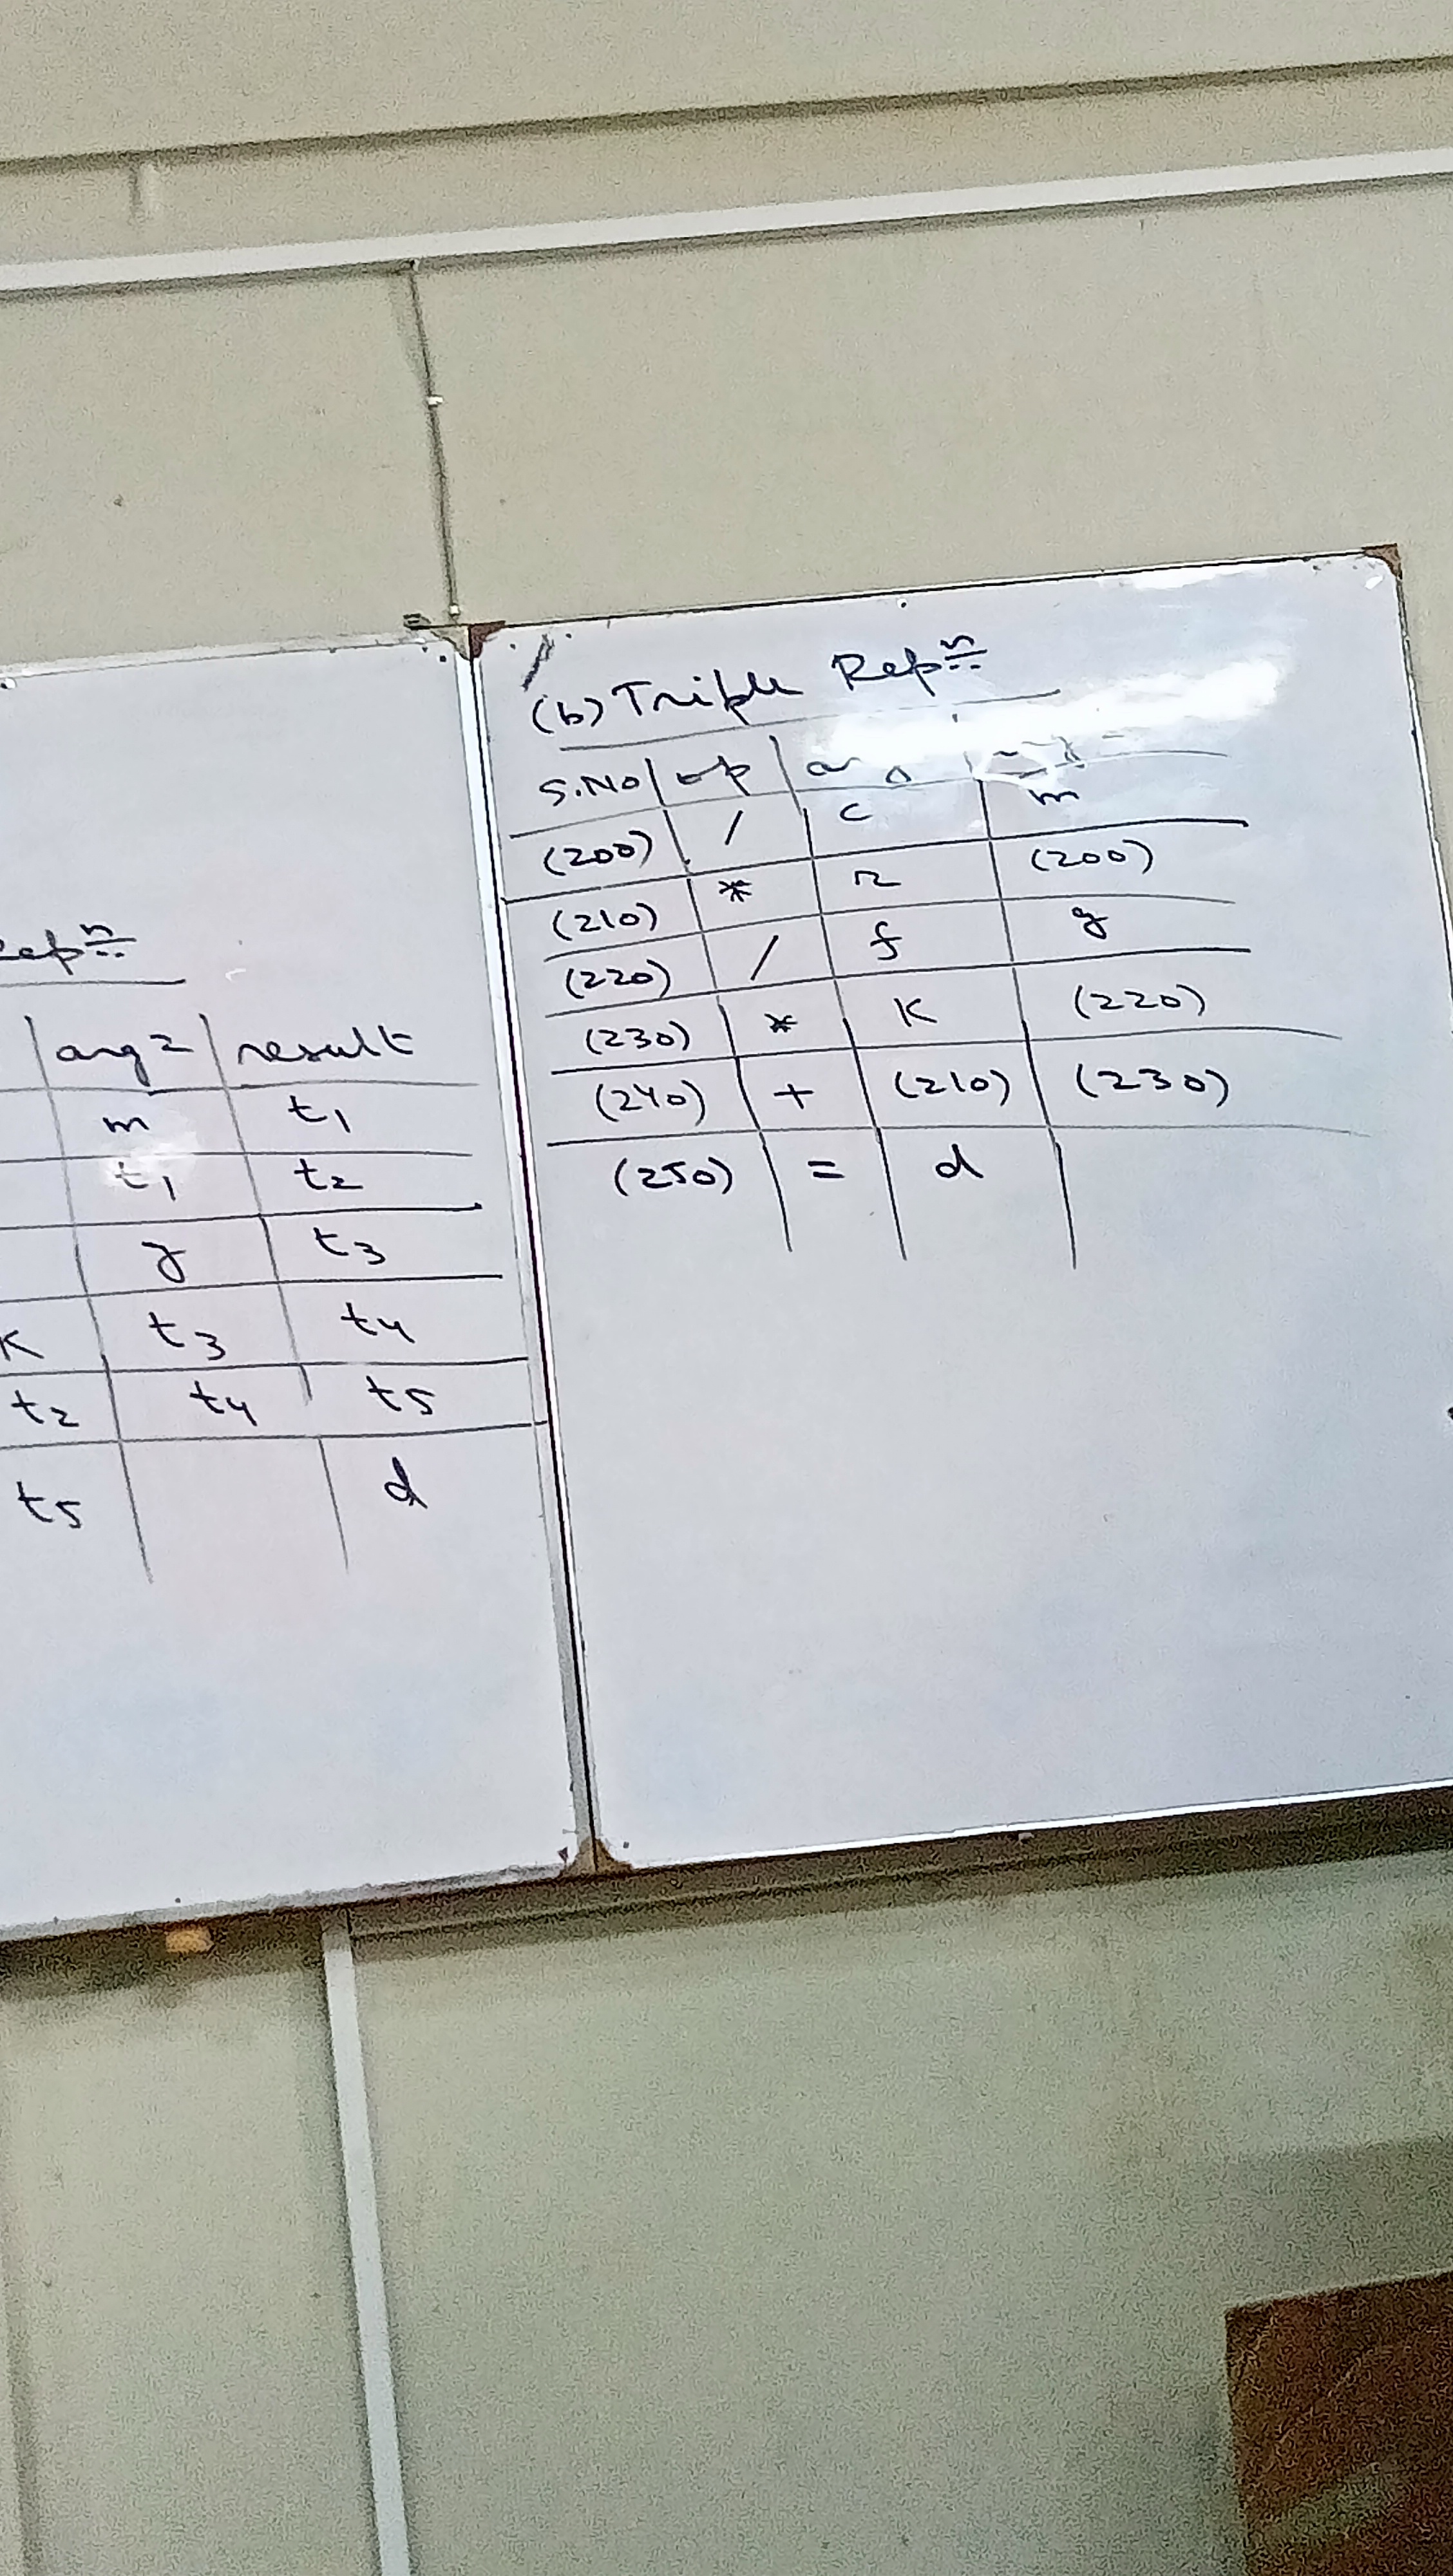 Repn
arg2 result
m t1
t1 t2
g t3
K t3 t4
t2 t4 t5
t5 d
(b) Triple Repn
S.No op
(200) / c m
(210) * r (200)
(220) / f g
(230) * K (220)
(240) + (210) (230)
(250) = d